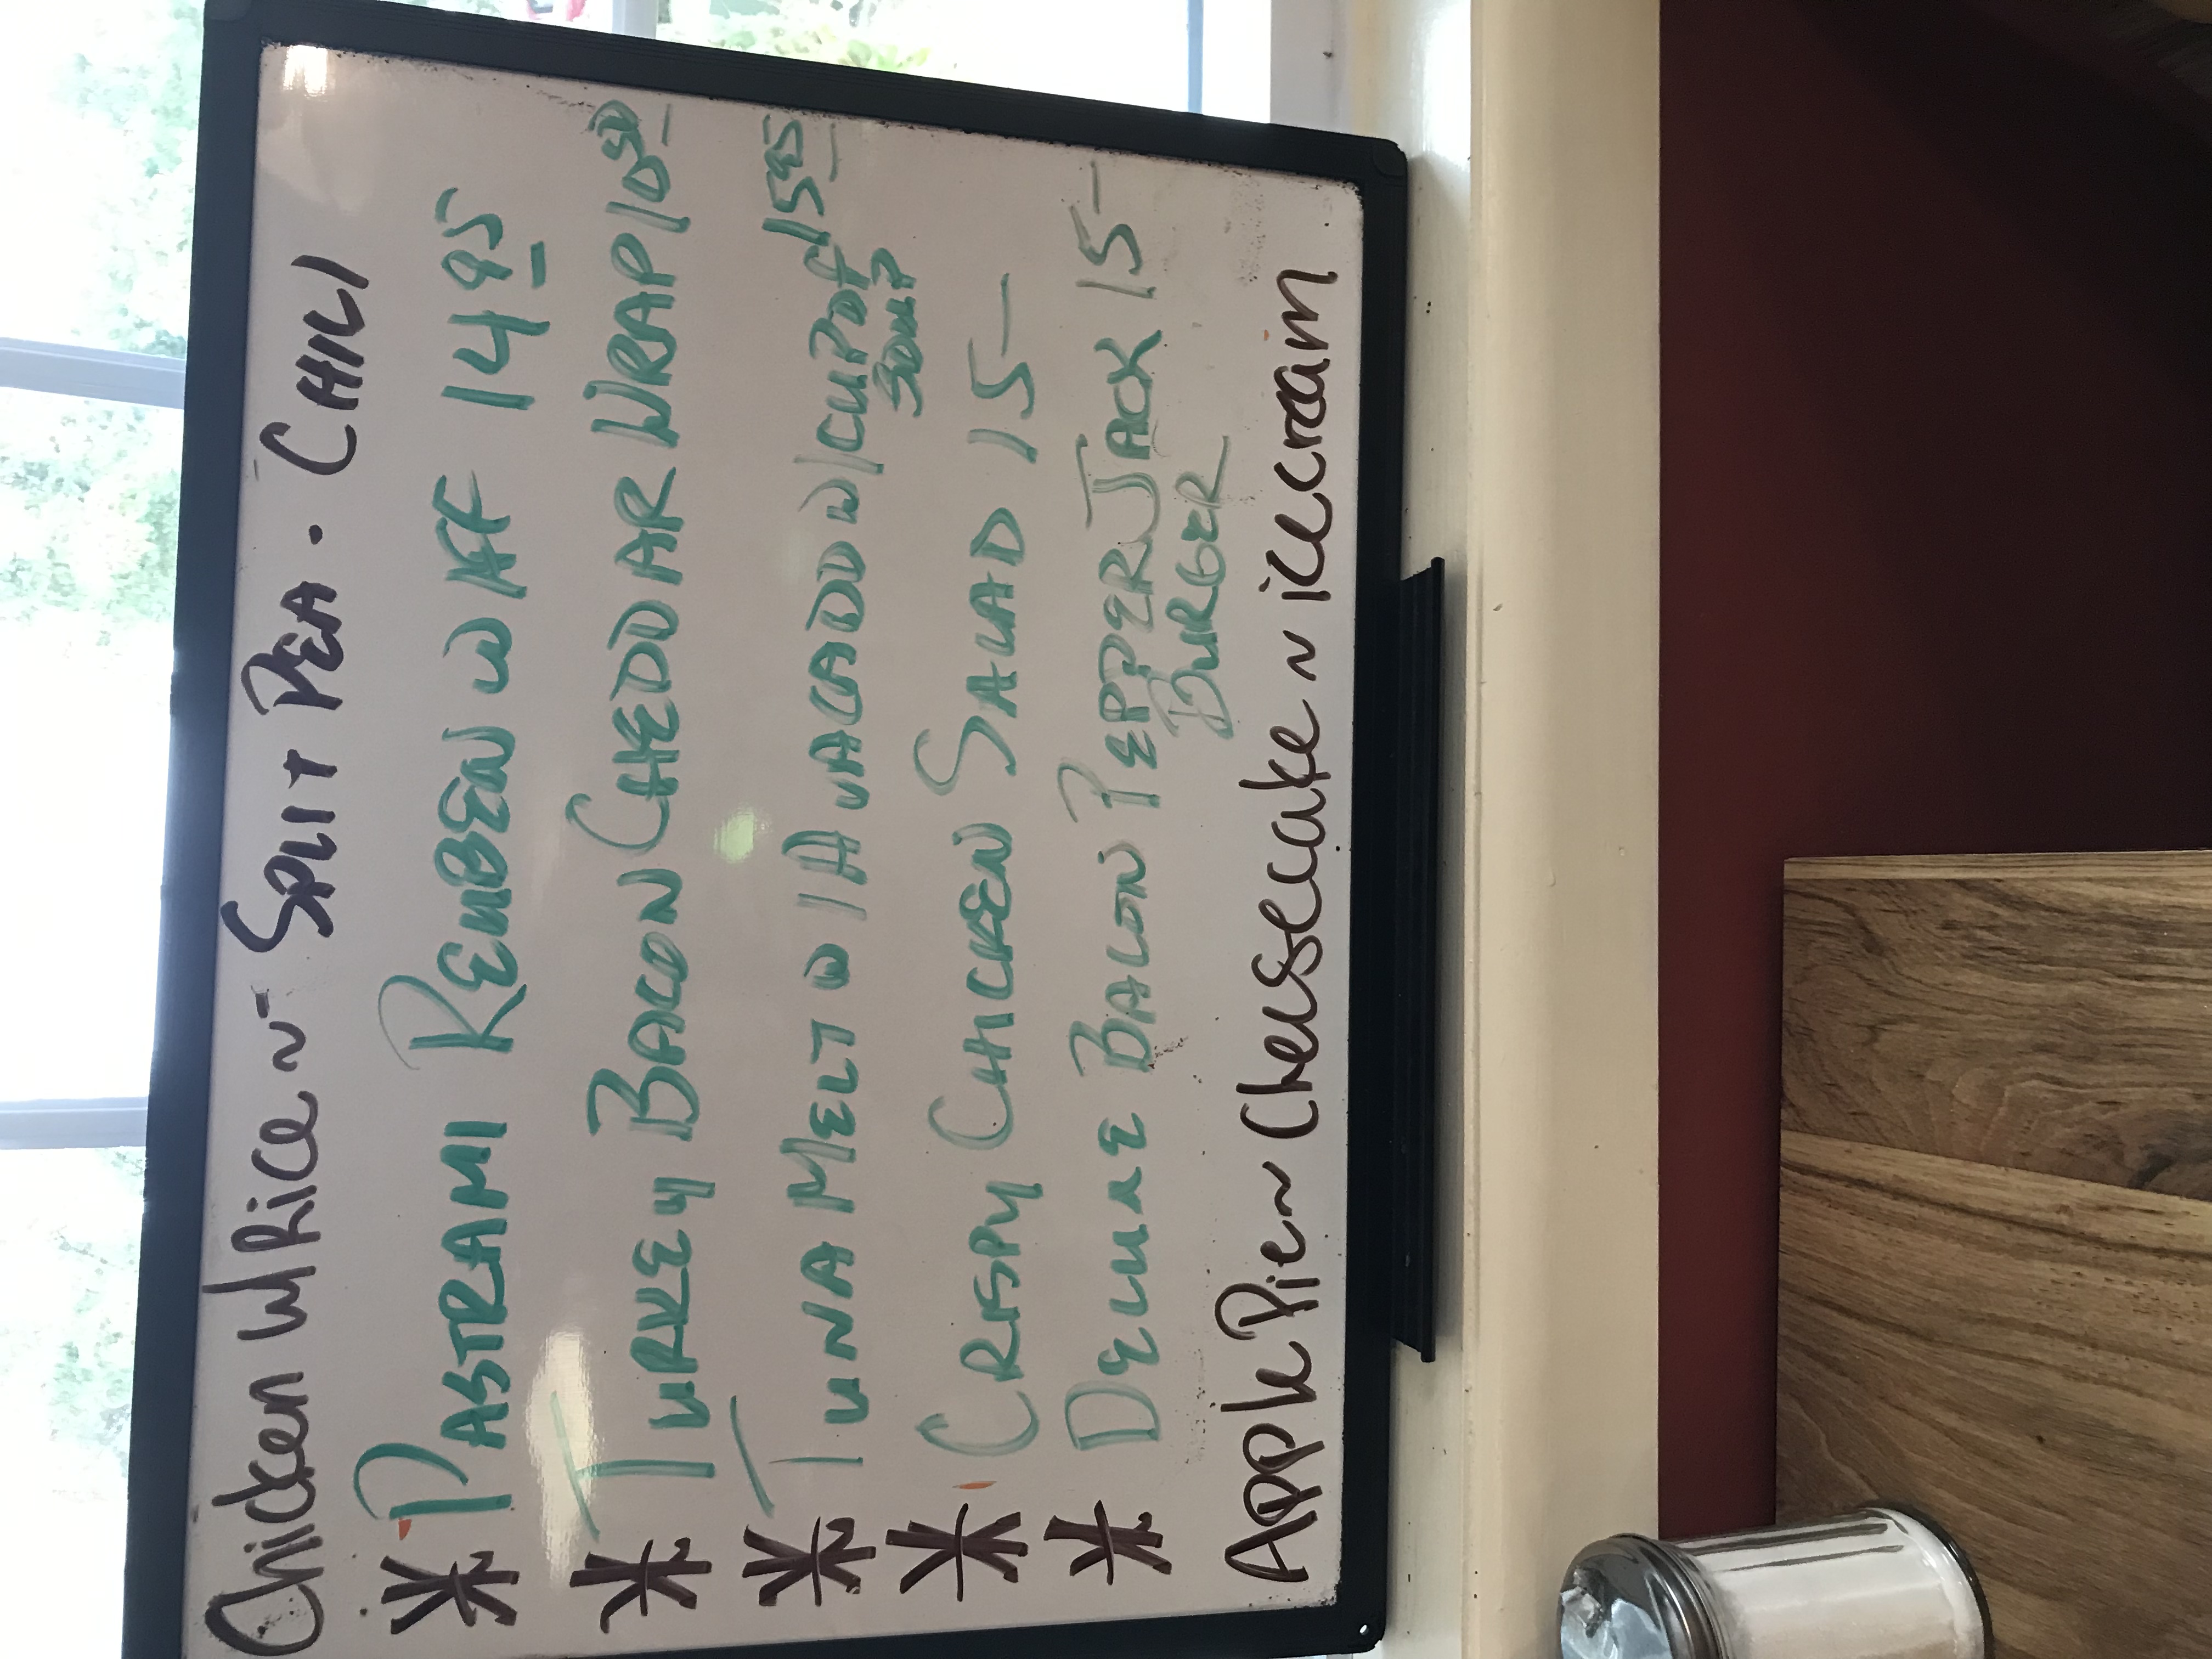 Chicken w/Rice ~ SPLIT PEA · CHILI
* PASTRAMI REUBEN W FF 14 95
* TURKEY BACON CHEDDAR WRAP 10 50
* TUNA MELT W/AVACADO W/CUP OF SOUP 15 95
* CRISPY CHICKEN SALAD 15-
* DELUXE BACON PEPPER JACK 15-
BURGER
Apple Pie ~ Cheesecake ~ icecream